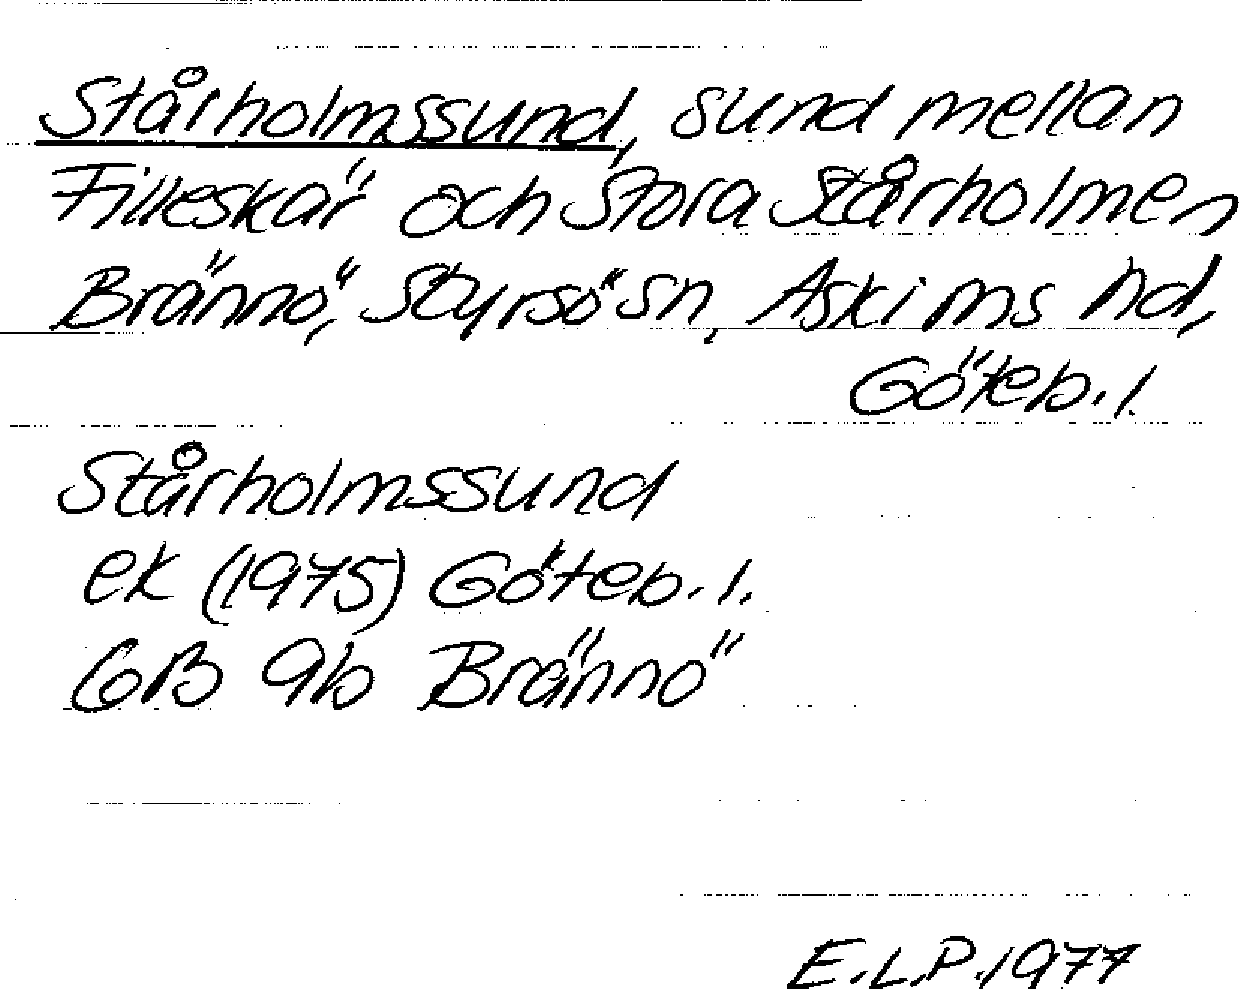 Stårholmssund, sund mellan
Filleskär och Stora Stårholmen
Brännö, Styrsö sn, Askims hd,
Göteb. l.
Stårholmssund
ek (1975) Göteb. l.
GB 9b Brännö
E.L.P. 1977